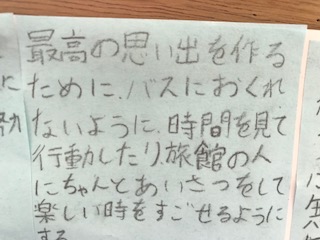 最高の思い出を作る
ために、バスにおくれ
ないように、時間を見て
行動したり、旅館の人
にちゃんとあいさつをして
楽しい時をすごせるように
する